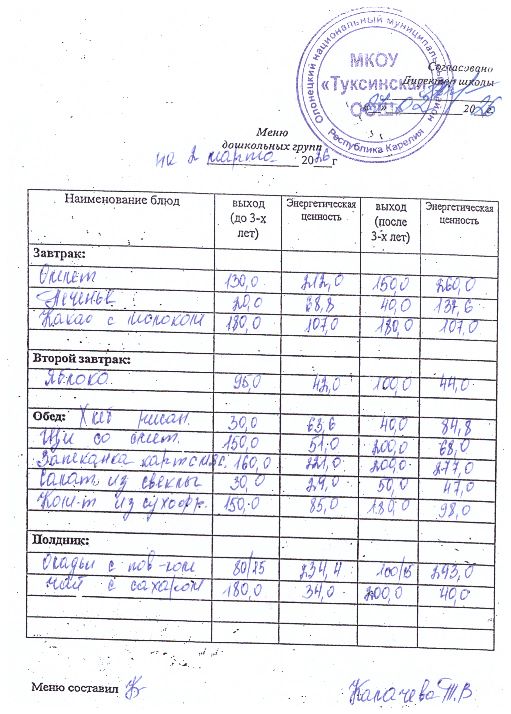 Олонецкий национальный муниципальный район
Республика Карелия
МКОУ
«Туксинская
ООШ»
Согласовано
Директор школы
02.02 2026
Меню
дошкольных групп
на 2 марта 2026 г
Наименование блюд выход (до 3-х лет) Энергетическая ценность выход (после 3-х лет) Энергетическая ценность
Завтрак:
Омлет 130,0 212,0 150,0 260,0
Печенье 20,0 68,8 40,0 137,6
Какао с молоком 180,0 107,0 180,0 107,0
Второй завтрак:
Яблоко 95,0 42,0 100,0 44,0
Обед: Хлеб пшен. 30,0 63,6 40,0 84,8
Щи со смет. 150,0 51,0 200,0 68,0
Запеканка карт с мяс. 160,0 221,0 200,0 277,0
Салат из свеклы 30,0 29,0 50,0 47,0
Комп-т из сухофр. 150,0 85,0 180,0 98,0
Полдник:
Оладьи с пов-лом 80/15 234,4 100/15 293,0
Чай с сахаром 180,0 34,0 200,0 40,0
Меню составил Калачева Т.В